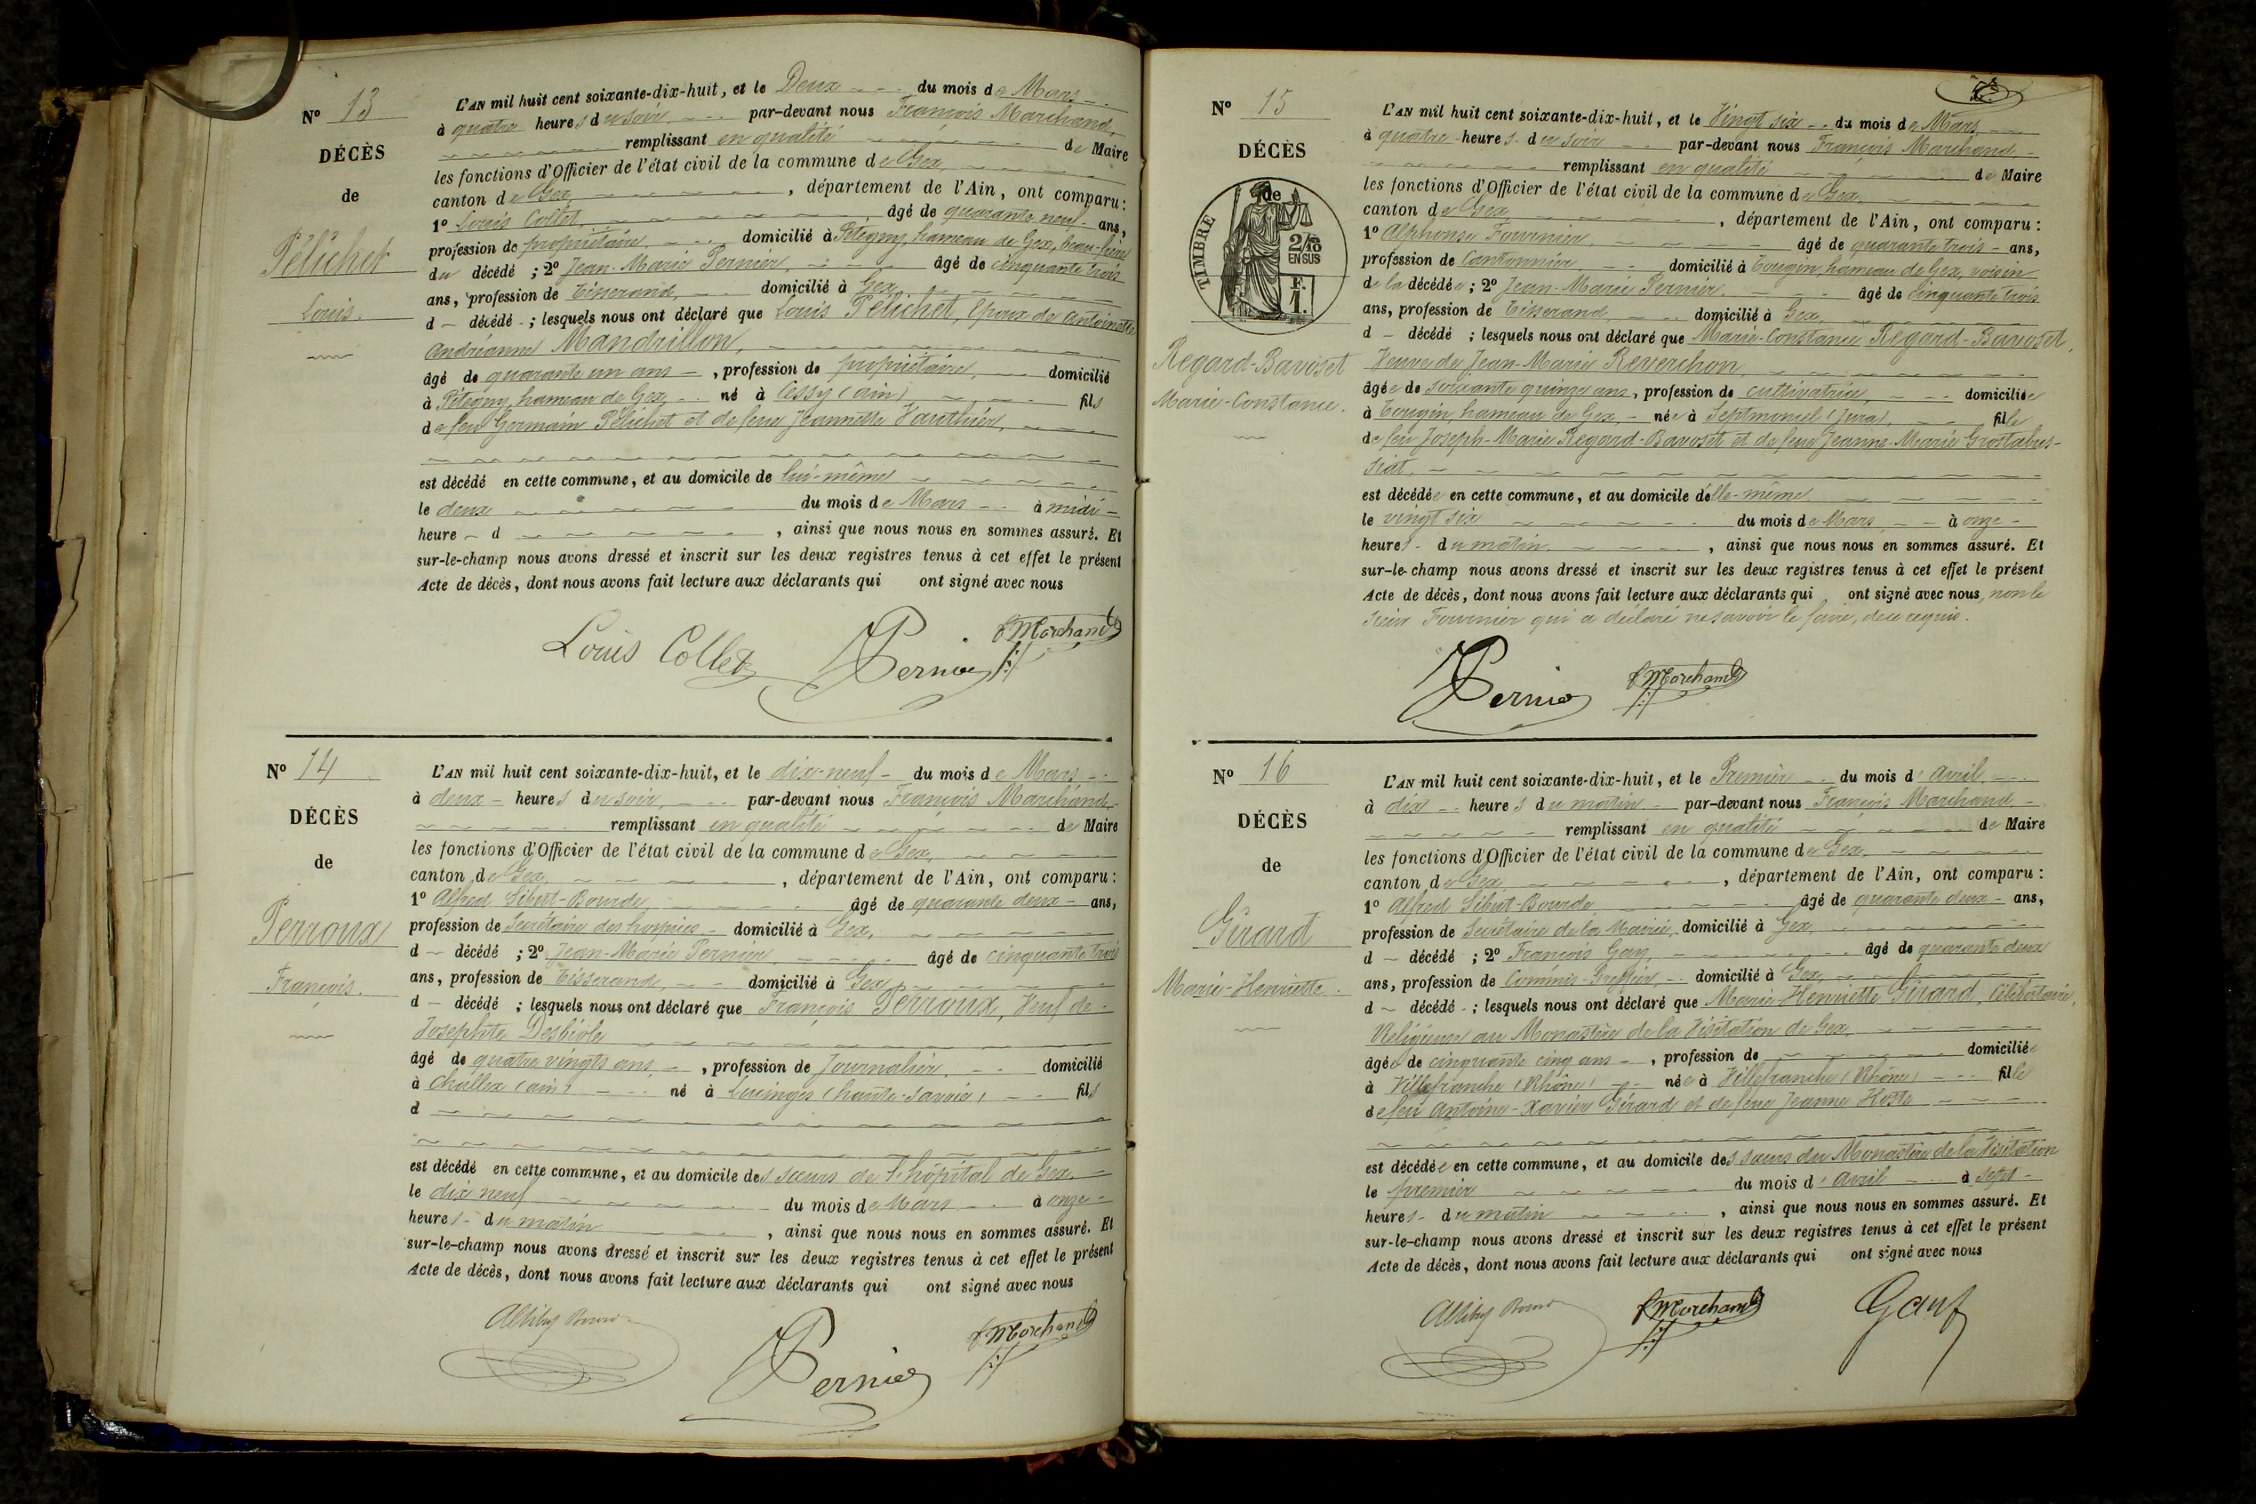 Nº 13
DÉCÈS
de
Pélichet
Louis.
L'AN mil huit cent soixante-dix-huit, et le Deux du mois de Mars
à quatre heures du soir, par-devant nous François Marchand,
remplissant en qualité de Maire
les fonctions d'Officier de l'état civil de la commune de Gex,
canton de Gex, département de l'Ain, ont comparu :
1º Louis Collet, âgé de quarante neuf ans,
profession de propriétaire, domicilié à Pitegny, hameau de Gex, beau-frère
du décédé ; 2º Jean-Marie Pernier, âgé de cinquante trois
ans, profession de Tisserand, domicilié à Gex,
d décédé ; lesquels nous ont déclaré que Louis Pélichet, Epoux de Antoinette
Andréanne Mandrillon,
âgé de quarante un ans, profession de propriétaire, domicilié
à Pitegny, hameau de Gex, né à Cessy (ain) fils
de feu Germain Pélichet et de feue Jeannette Vauthier,
est décédé en cette commune, et au domicile de lui-même
le deux du mois de Mars à midi
heure d , ainsi que nous nous en sommes assuré. Et
sur-le-champ nous avons dressé et inscrit sur les deux registres tenus à cet effet le présent
Acte de décès, dont nous avons fait lecture aux déclarants qui ont signé avec nous
Louis Collet Pernier f Marchand
Nº 14
DÉCÈS
de
Perroux
François.
L'AN mil huit cent soixante-dix-huit, et le dix-neuf du mois de Mars
à deux heures du soir, par-devant nous François Marchand,
remplissant en qualité de Maire
les fonctions d'Officier de l'état civil de la commune de Gex,
canton de Gex, département de l'Ain, ont comparu :
1º Alfred Sibut-Bourde, âgé de quarante deux ans,
profession de Secrétaire des hospices domicilié à Gex,
d décédé ; 2º Jean-Marie Pernier, âgé de cinquante trois
ans, profession de Tisserand, domicilié à Gex,
d décédé ; lesquels nous ont déclaré que François Perroux, Veuf de
Josephte Desbiole
âgé de quatre vingts ans, profession de Journalier, domicilié
à Challex (ain) né à Lucinges (haute-Savoie) fils
d
est décédé en cette commune, et au domicile des sœurs de l'hôpital de Gex.
le dix neuf du mois de Mars à onze
heures du matin, ainsi que nous nous en sommes assuré. Et
sur-le-champ nous avons dressé et inscrit sur les deux registres tenus à cet effet le présent
Acte de décès, dont nous avons fait lecture aux déclarants qui ont signé avec nous
Pernier f Marchand
Nº 15
DÉCÈS
de
TIMBRE
2/10 EN SUS
F.
1.
Regard-Bavoset
Marie-Constance.
L'AN mil huit cent soixante-dix-huit, et le Vingt six du mois de Mars,
à quatre heures du soir par-devant nous François Marchand,
remplissant en qualité de Maire
les fonctions d'Officier de l'état civil de la commune de Gex,
canton de Gex, département de l'Ain, ont comparu :
1º Alphonse Fournier, âgé de quarante trois ans,
profession de Cantonnier, domicilié à Tougin, hameau de Gex, voisin
de la décédée ; 2º Jean-Marie Pernier, âgé de cinquante trois
ans, profession de Tisserand, domicilié à Gex,
d décédé ; lesquels nous ont déclaré que Marie-Constance Regard-Bavoset,
Veuve de Jean-Marie Reverchon,
âgée de soixante quinze ans, profession de cultivatrice, domiciliée
à Tougin, hameau de Gex, née à Septmoncel (Jura), fille
de feu Joseph-Marie Regard-Bavoset et de feue Jeanne-Marie Grostabus-
siat,
est décédée en cette commune, et au domicile d'elle-même
le vingt six du mois de Mars à onze
heures du matin, ainsi que nous nous en sommes assuré. Et
sur-le-champ nous avons dressé et inscrit sur les deux registres tenus à cet effet le présent
Acte de décès, dont nous avons fait lecture aux déclarants qui ont signé avec nous, non le
sieur Fournier qui a déclaré ne savoir le faire, de ce requis.
Pernier f Marchand
Nº 16
DÉCÈS
de
Girard
Marie-Henriette.
L'AN mil huit cent soixante-dix-huit, et le Premier du mois d'avril
à dix heures du matin par-devant nous François Marchand
remplissant en qualité de Maire
les fonctions d'Officier de l'état civil de la commune de Gex,
canton de Gex, département de l'Ain, ont comparu :
1º Alfred Sibut-Bourde âgé de quarante deux ans,
profession de Secrétaire de la Mairie, domicilié à Gex,
d décédé ; 2º François Gay, âgé de quarante deux
ans, profession de Commis-Greffier, domicilié à Gex,
d décédé ; lesquels nous ont déclaré que Marie-Henriette Girard, Célibataire,
Religieuse au Monastère de la Visitation de Gex,
âgée de cinquante cinq ans, profession de domiciliée
à Villefranche (Rhône) née à Villefranche (Rhône) fille
de feu Antoine-Xavier Girard et de feue Jeanne Hoste
est décédée en cette commune, et au domicile des sœurs du Monastère de la Visitation
le premier du mois d'avril à sept
heures du matin, ainsi que nous nous en sommes assuré. Et
sur-le-champ nous avons dressé et inscrit sur les deux registres tenus à cet effet le présent
Acte de décès, dont nous avons fait lecture aux déclarants qui ont signé avec nous
f Marchand Gay